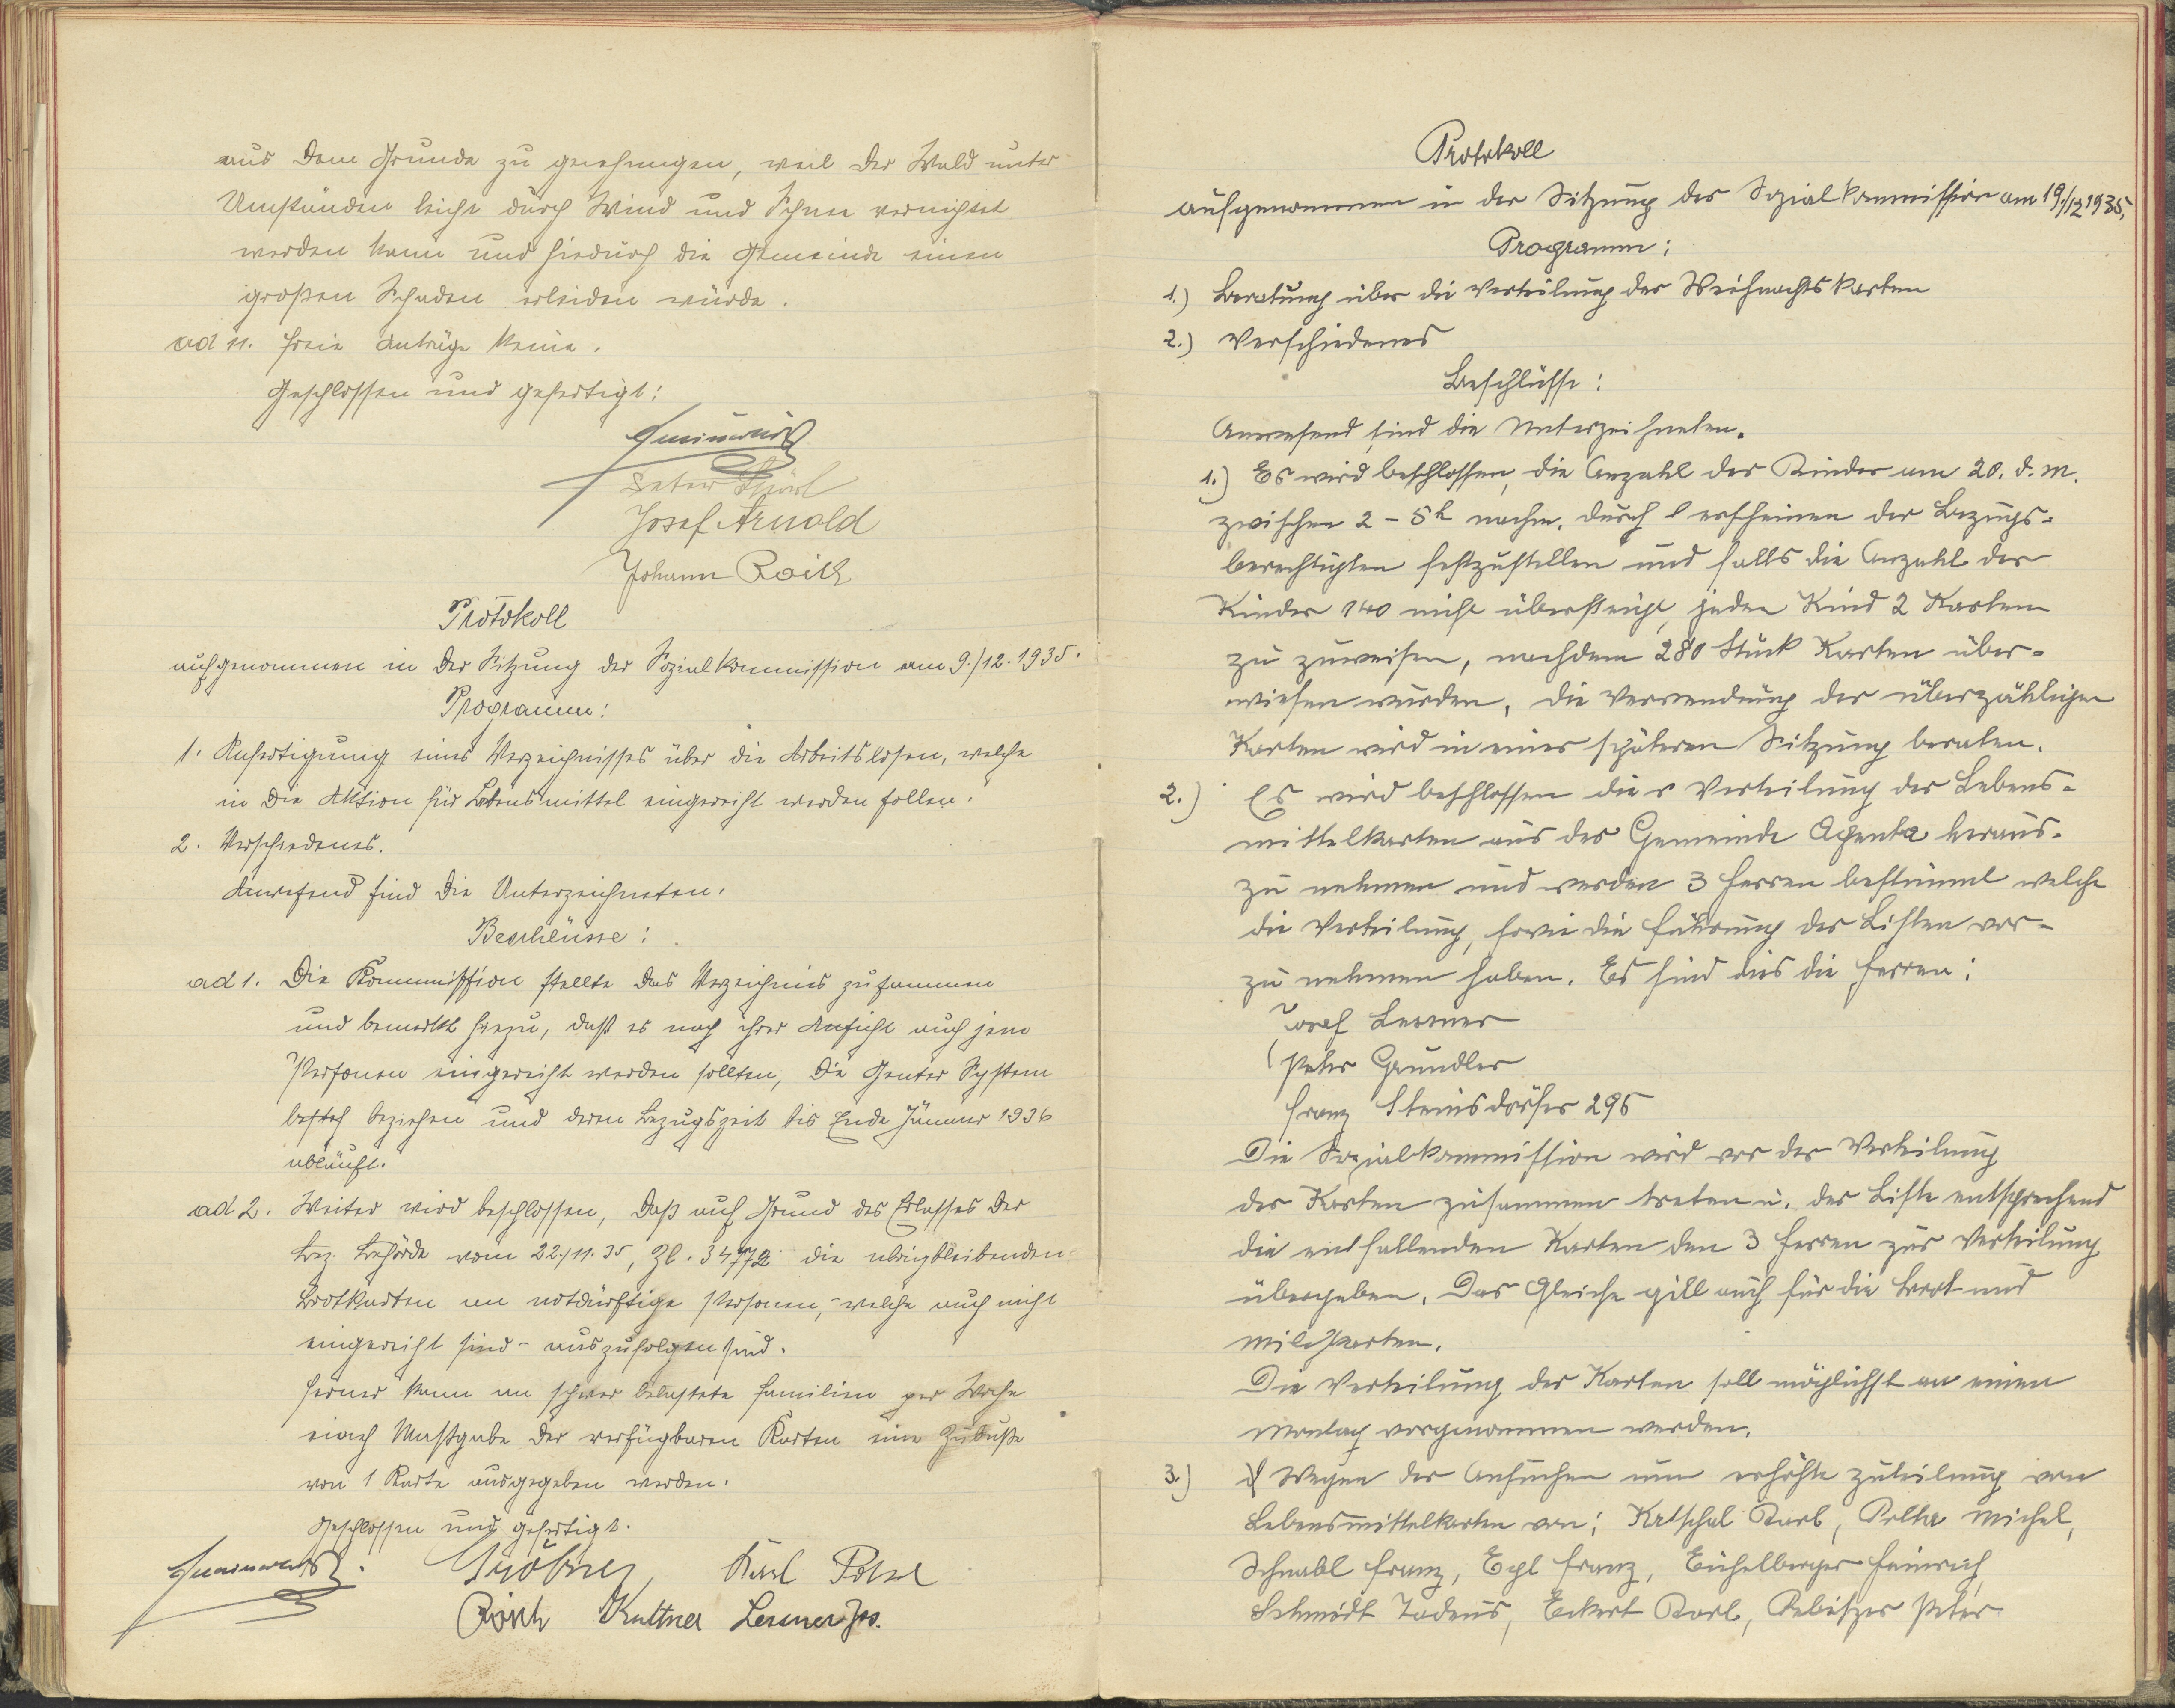 aus dem Grunde zu genehmigen, weil der Wald unter
Umständen leicht durch Wind und Schnee vernichtet
werden kann und hiedurch die Gemeinde einen
großen Schaden erleiden würde.
ad 11. Freie Anträge keine.
Geschlossen und gefertigt:
Peter
Josef Arnold
Johann Roith
Protokoll
aufgenommen in der Sitzung der Sozialkommission am 9./12.1935.
Programm:
1. Anfertigung eines Verzeichnisses über die Arbeitslosen, welche
in die Aktion für Lebensmittel eingereiht werden sollen.
2. Verschiedenes.
Anwesend sind die Unterzeichneten.
Beschlüsse:
ad 1. Die Kommission stellte das Verzeichnis zusammen
und bemerkt hiezu, daß es nach ihrer Ansicht auch jene
Personen eingereiht werden sollten, die Genter System
beziehen und deren Bezugszeit bis Ende Jänner 1936
abläuft.
ad 2. Weiter wird beschlossen, daß auf Grund des Erlasses der
Bez. Behörde vom 22./11.35, Zl. 34772 die übrigbleibenden
Brotkarten an notdürftige Personen, - welche auch nicht
eingereiht sind - auszufolgen sind.
Ferner kann an schwer belastete Familien per Woche
nach Maßgabe der verfügbaren Karten eine Zubuße
von 1 Karte ausgegeben werden.
Geschlossen und gefertigt.
Gröbner Karl
Kuttner Lessner Jos.
Protokoll
aufgenommen in der Sitzung der Sozialkommission am 19./12 1935,
Programm:
1.) Beratung über die Verteilung der Weihnachtskarten
2.) Verschiedenes
Beschlüsse:
Anwesend sind die Unterzeichneten.
1.) Es wird beschlossen, die Anzahl der Kinder am 20. d. M.
zwischen 2 - 5h nachm. durch erscheinen der Bezugs-
berechtigten festzustellen und falls die Anzahl der
Kinder 140 nicht übersteigt, jeden Kind 2 Karten
zu zuweisen, nachdem 280 Stück Karten über-
wiesen wurden. Die Verwendung der überzähligen
Karten wird in einer späteren Sitzung beraten.
2.) Es wird beschlossen die Verteilung der Lebens-
mittelkarten aus der Gemeinde Agenta heraus-
zu nehmen und werden 3 Herren bestimmt welche
die Verteilung, sowie die Führung der Listen vor-
zu nehmen haben. Es sind dies die Herren:
Josef Lessner
Peter Gründler
Franz Steinsdörfer 295
Die Sozialkommission wird vor der Verteilung
der Karten zusammen treten u. der Liste entsprechend
die entfallenden Karten den 3 Herren zur Verteilung
übergeben. Das Gleiche gilt auch für die Brot- und
Milchkarten.
Die Verteilung der Karten soll möglichst an einen
Montag vorgenommen werden.
3.) Wegen der Ansuchen um erhöhte Zuteilung von
Lebensmittelkarten von: Karl, Michel,
Schnabl Franz, Egl Franz, Eichelberger Heinrich,
Schmidt Tadeus, Eckert Karl, Peter